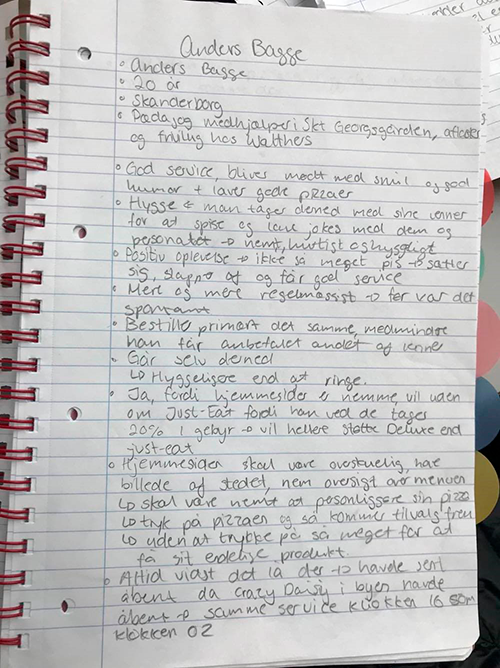 Anders Bagge
• Anders Bagge
• 20 år
• Skanderborg
• Pædagog medhjælper i Skt Georgsgården, afløser
og frivillig hos Walthers
• God service, bliver mødt med smil og god
humør + laver gode pizzaer
• Hygge & man tager derned med sine venner
for at spise og lave jokes med dem og
personalet → nemt, hurtigt og hyggeligt
• Positiv oplevelse → ikke så meget pis → sætter
sig, slapper af og får god service
• Mere og mere regelmæssigt → før var det
spontant
• Bestiller primært det samme, medmindre
han får anbefalet andet af venner
• Går selv derned
↳ Hyggeligere end at ringe.
• Ja, fordi hjemmesider er nemme, vil uden
om Just-Eat fordi han ved de tager
20% i gebyr → vil hellere støtte Deluxe end
just-eat
• Hjemmesiden skal være overskuelig, have
billede af stedet, nem oversigt over menuen
↳ skal være nemt at personliggøre sin pizza
↳ tryk på pizzaen og så kommer tilvalg frem
↳ uden at trykke på så meget for at
få sit endelige produkt.
• Altid vidst det lå der → havde sent
åbent da Crazy Daisy i byen havde
åbent → samme service klokken 16 som
klokken 02